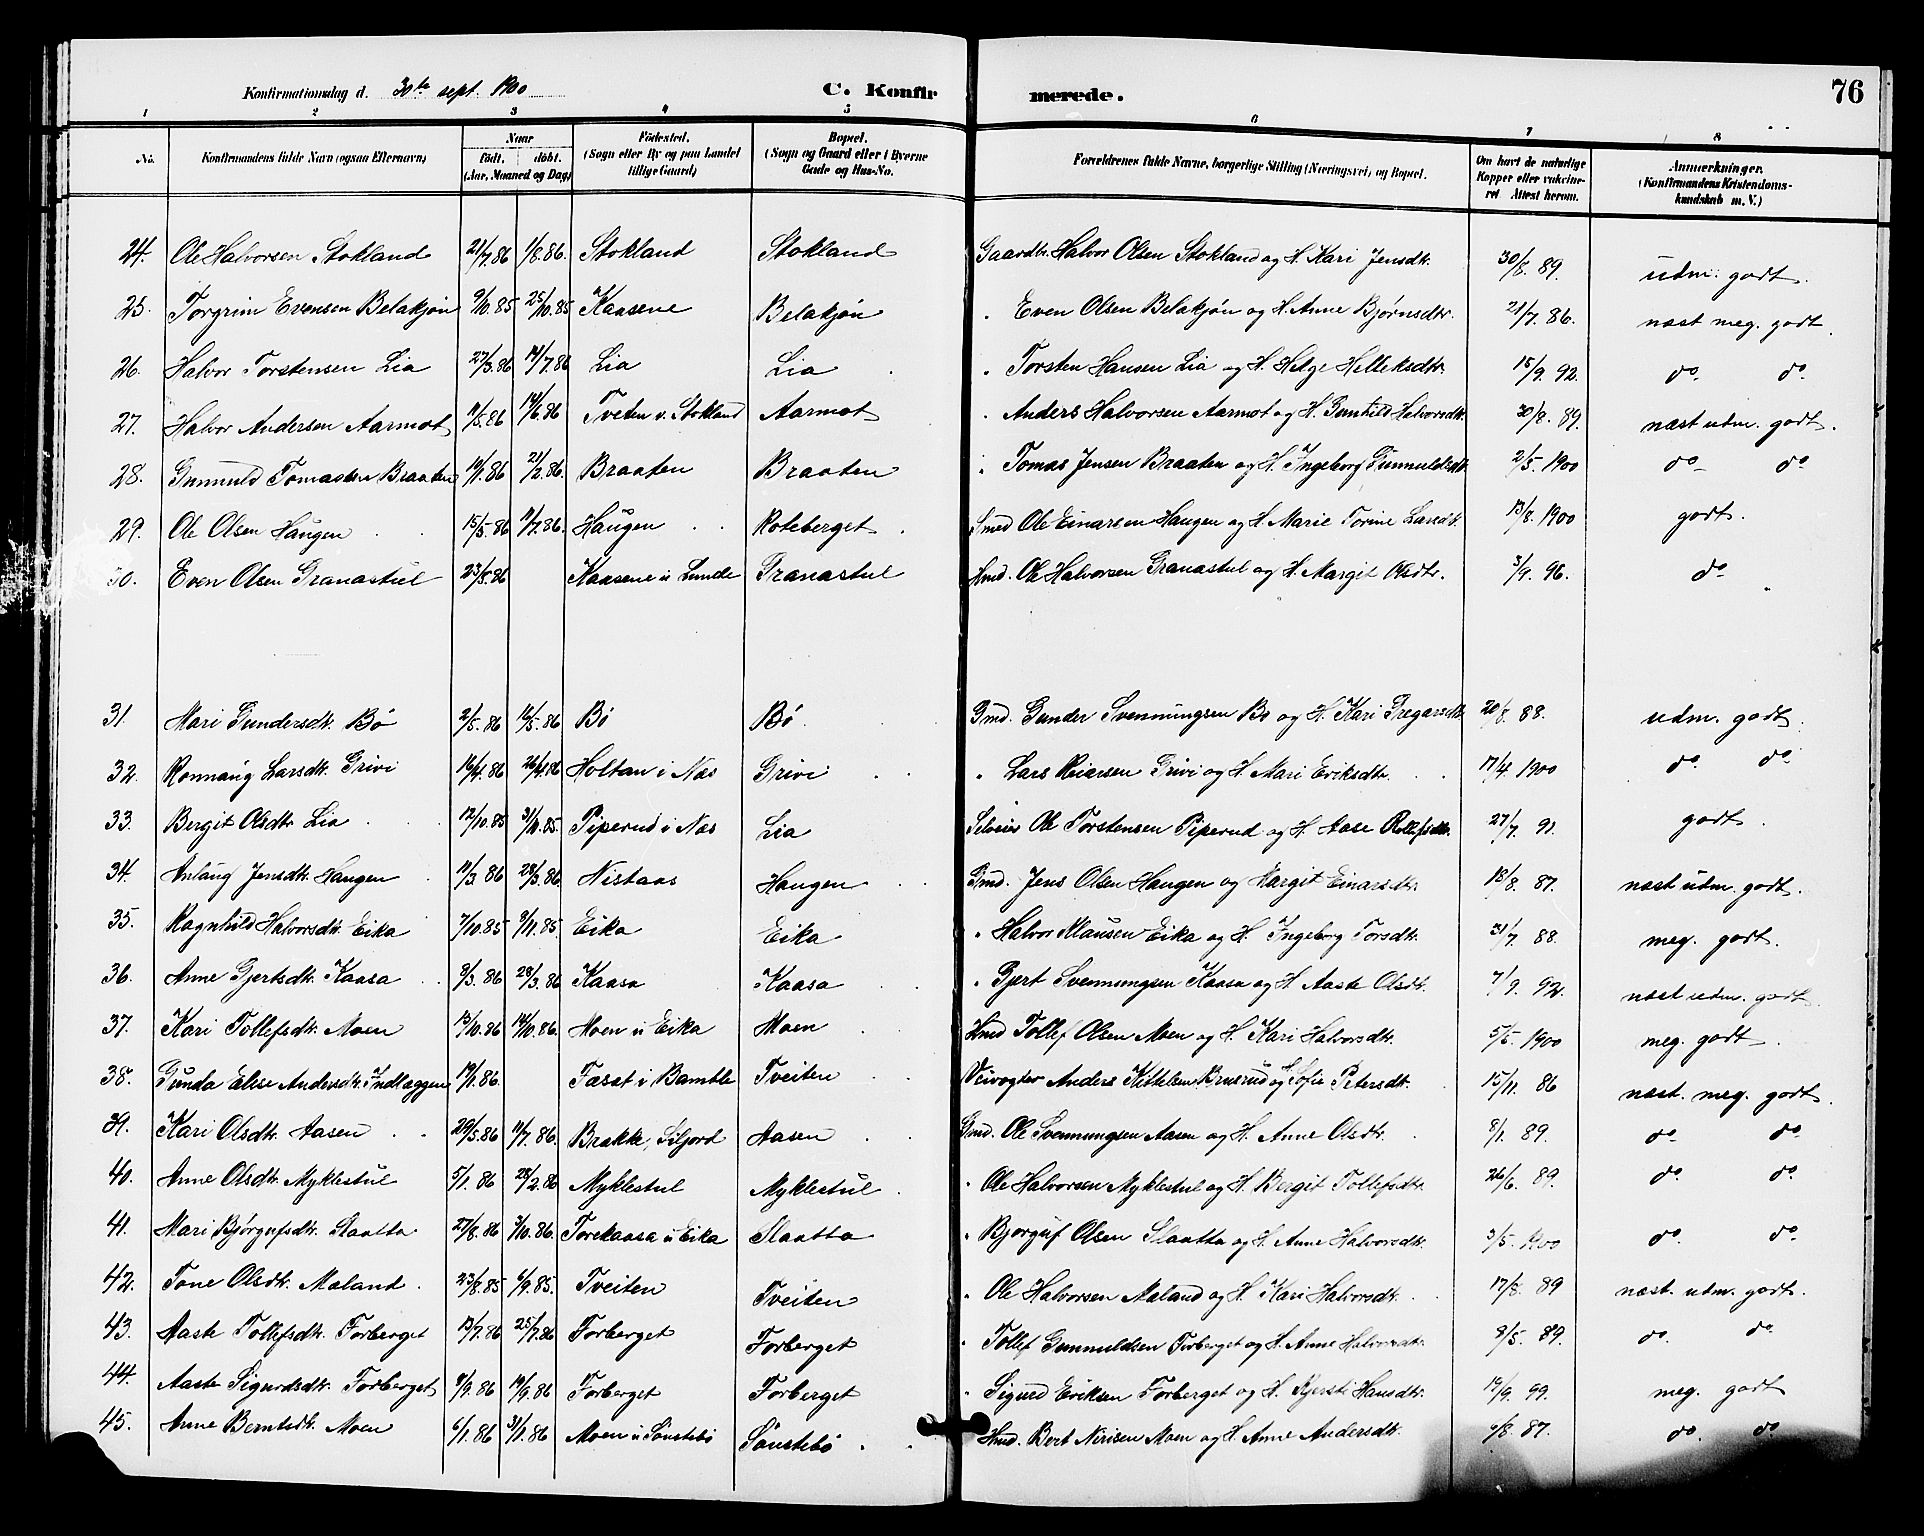 Konfirmationsdag d. 30te sept. 1900
C. Konfirmerede.
76
1 2 3 4 5 6 7 8
No. Konfirmandens fulde Navn (ogsaa Efternavn) Naar födt. döbt. (Aar, Maaned og Dag) Födested. (Sogn eller By og paa Landet tillige Gaard) Bopæl. (Sogn og Gaard eller i Byerne Gade og Hus-No. Forældrenes fulde Navne, borgerlige Stilling (Næringsvei) og Bopæl. Om havt de naturlige Kopper eller vakcineret Attest herom. Anmærkninger. (Konfirmandens Kristendomskundskab m. V.)
24. Ole Halvorsen Stokland 21/7.86 1/8.86. Stokland Stokland Gaardbr. Halvor Olsen Stokland og H. Kari Jensdtr. 30/8. 89. udm. godt.
25. Torgrim Evensen Belakjøn 9/10.85 25/10.85 Kaasene Belakjøn " Even Olsen Belakjøn og H. Anne Bjørnsdtr. 21/7. 86. næst meg. godt.
26. Halvor Torstensen Lia 27/3.86 14/7.86 Lia Lia " Torsten Hansen Lia og H. Helge Helleksdtr. 15/9. 92. do. do.
27. Halvor Andersen Aarmot 11/5.86 14/6.86 Tveten u. Stokland Aarmot " Anders Halvorsen Aarmot og H. Gunhild Halvorsdtr. 30/8. 89. næst udm. godt.
28. Gunnuld Tomassen Braaten 19/1.86 21/2.86. Braaten Braaten " Tomas Jensen Braaten og H. Ingeborg Gunnuldsdtr. 2/5. 1900 do. do.
29. Ole Olsen Haugen 15/5.86 11/7.86. Haugen Roteberget Smed Ole Einarsen Haugen og H. Marie Torine Larsdtr. 13/8. 1900 godt.
30. Even Olsen Granastul 23/8.86 Kaasene u Lunde Granastul Hmd. Ole Halvorsen Granastul og H. Margit Olsdtr. 3/9. 96. do.
31. Mari Gundersdtr. Bö 2/5.86 16/5.86 Bö Bö. Gmd. Gunder Svennungsen Bö og H. Kari Gregarsdtr. 20/8. 88. udm. godt.
32. Ronnaug Larsdtr. Grivi 16/4.86 26/4.86 Holtan i Næs Grivi " Lars Reiarsen Grivi og H. Mari Eriksdtr. 17/4. 1900 do. do.
33. Bergit Olsdtr. Lia 12/10.85 31/10.85. Piperud i Næs Lia Selveier Ole Torstensen Piperud og H. Aase Rollefsdtr. 27/7. 91. godt.
34. Anlaug Jensdtr. Haugen 11/3.86 28/3.86. Nistaas Haugen Gmd. Jens Olsen Haugen og Margit Einarsdtr. 18/8. 87. næst udm. godt.
35. Ragnhild Halvorsdtr. Eika 7/10.85 8/11.85. Eika Eika " Halvor Klausen Eika og H. Ingeborg Torsdtr. 31/7. 88. meg. godt.
36. Anne Gjertsdtr. Kaasa 8/3.86 28/3.86 Kaasa Kaasa " Gjert Svennungsen Kaasa og H. Aaste Olsdtr. 7/9. 92. næst udm. godt.
37. Kari Tollefsdtr. Moen 13/10.86 14/10.86. Moen u Eika Moen Hmd Tollef Olsen Moen og H. Kari Halvorsdtr. 5/5. 1900 meg. godt.
38. Gunda Elise Andersdtr. Indlæggen 19/1.86. Fæset i Bamble Tveiten Veivogter Anders Kittelsen Brusrud og H. Sofie Petersdtr. 15/11 86 næst. meg. godt.
39. Kari Olsdtr. Aasen 29/5.86 11/7.86. Brakke, Siljord Aasen Gmd. Ole Svennungsen Aasen og H. Anne Olsdtr. 8/1. 89. do. do.
40. Anne Olsdtr. Myklestul 5/1.86 28/2.86 Myklestul Myklestul " Ole Halvorsen Myklestul og H. Bergit Tollefsdtr. 26/6. 89. do. do.
41. Mari Bjørgufsdtr. Slaatta 27/8.86 3/10.86. Torekaasa u Eika Slaatta " Bjorguf Olsen Slaatta og H. Anne Halvorsdtr. 3/5. 1900 do. do.
42. Tone Olsdtr. Mæland. 23/8.85 6/9.85. Tveiten Tveiten " Ole Halvorsen Mæland og H. Kari Halvorsdtr. 17/8. 89 næst. udm. godt.
43. Aaste Tollefsdtr. Forberget 13/7.86 25/7.86 Forberget Forberget " Tollef Gunnuldsen Forberget og H. Anne Halvorsdtr. 8/5. 89. do. do.
44. Aaste Sigurdsdtr. Forberget 9/9.86 19/9.86 Forberget Forberget " Sigurd Eriksen Forberget og H. Kjersti Hansdtr. 19/9. 99. meg. godt
45. Anne Berntsdtr. Moen 6/1.86 31/1.86 Moen u Sönstebö Sönstebö Hmd. Bert Nirisen Moen og H. Anne Andersdtr. 6/8. 87. do. do.